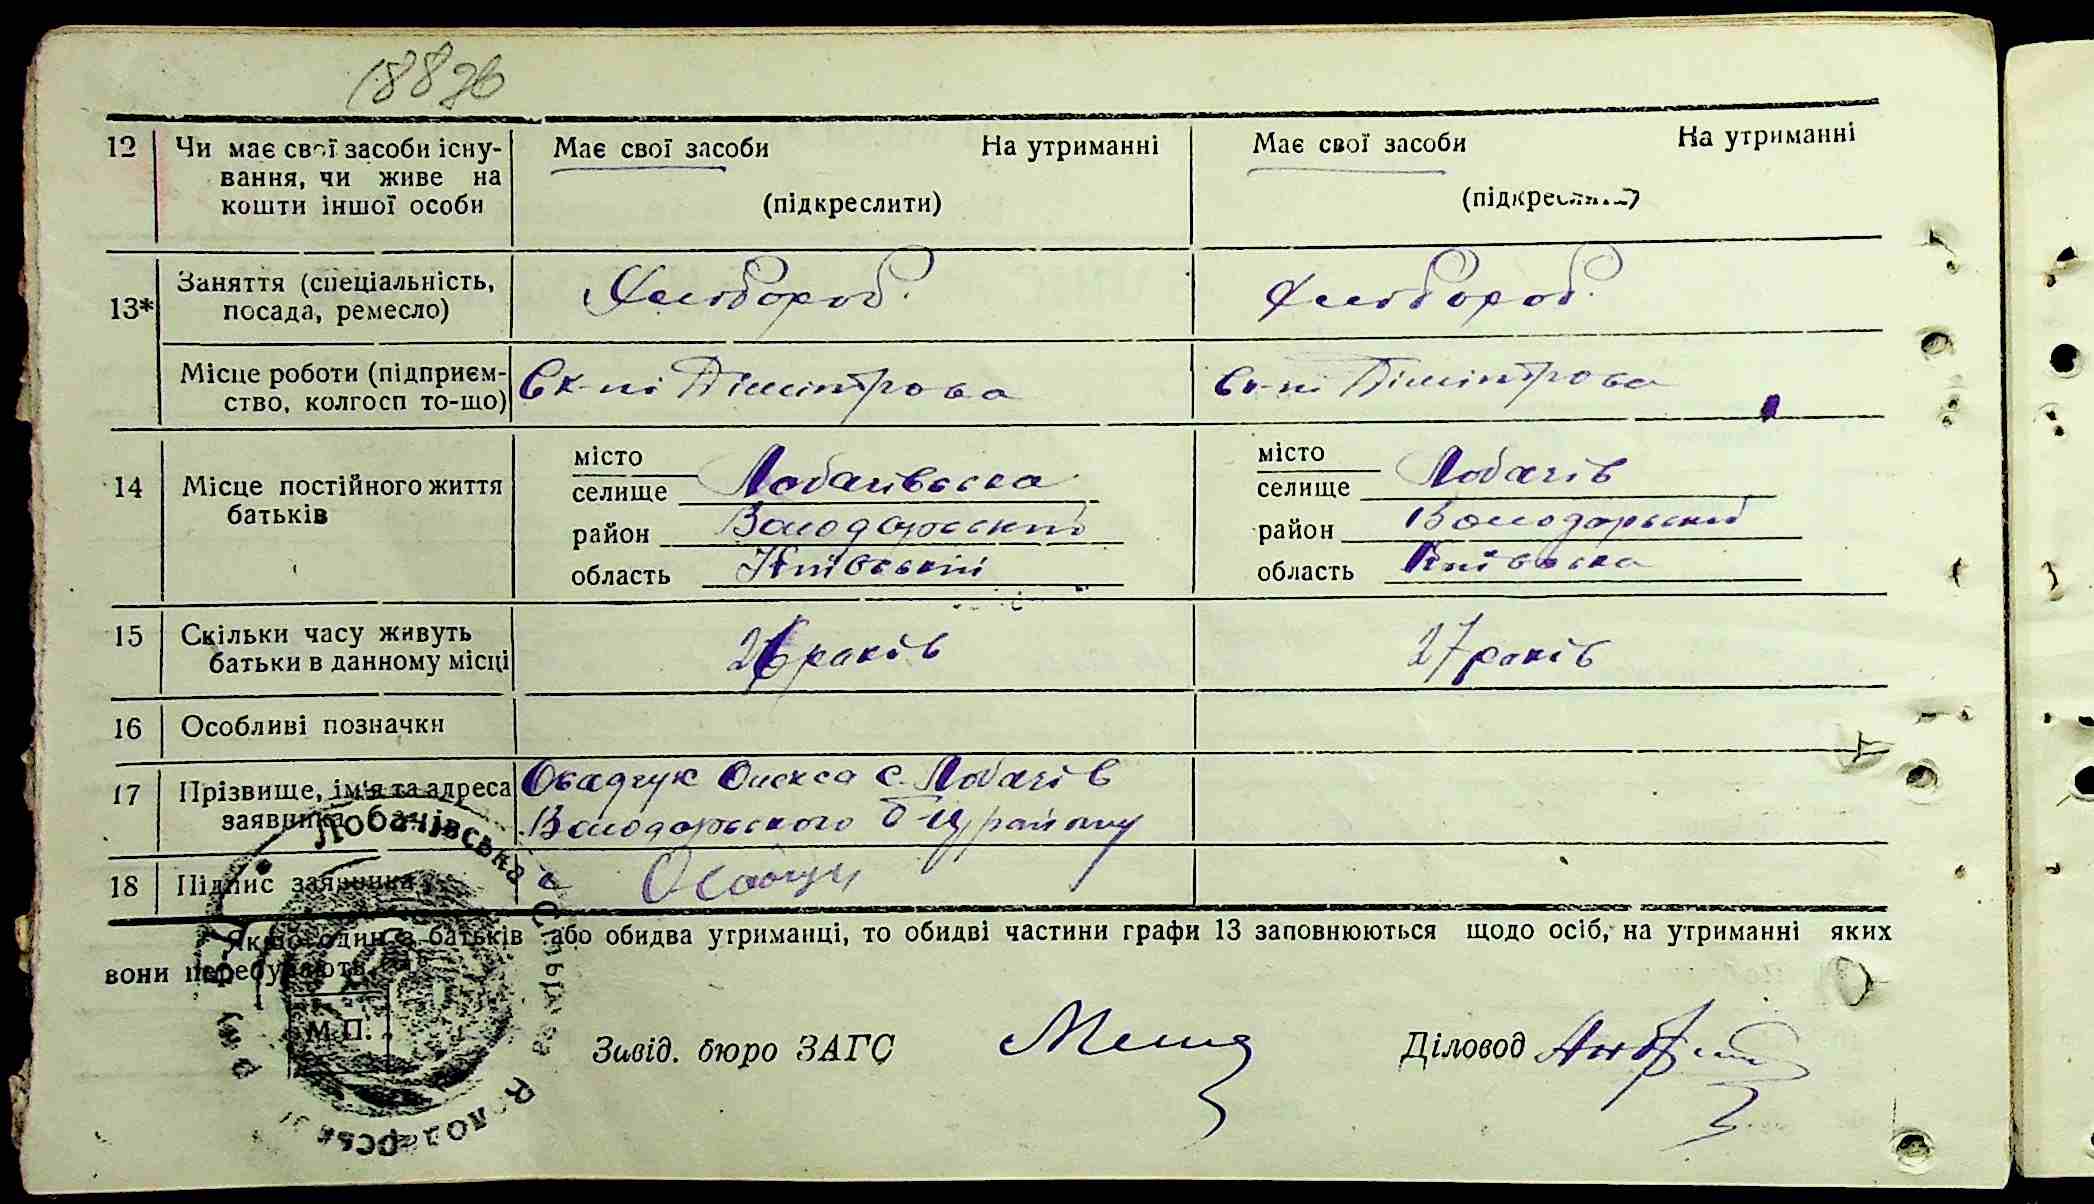 188зв
12 Чи має свої засоби існу- Має свої засоби На утриманні Має свої засоби На утриманні
вання, чи живе на
кошти іншої особи (підкреслити) (підкреслити)
13* Заняття (спеціальність, Хлібороб. Хлібороб.
посада, ремесло)
Місце роботи (підприєм- Димітрова Димітрова
ство, колгосп то-що)
14 Місце постійного життя батьків
місто місто
селище Лобачівська селище Лобачів
район Володарський район Володарський
область Київський область Київська
15 Скільки часу живуть 26 років 27 років
батьки в данному місці
16 Особливі позначки
17 Прізвище, ім'я та адреса Овадчук Олекса с. Лобачів
заявника Володарського району
18 Підпис заявника
Якщо один з батьків або обидва утриманці, то обидві частини графи 13 заповнюються щодо осіб, на утриманні яких
вони перебувають.
М.П.
Лобачівська Сільська
Завід. бюро ЗАГС Діловод